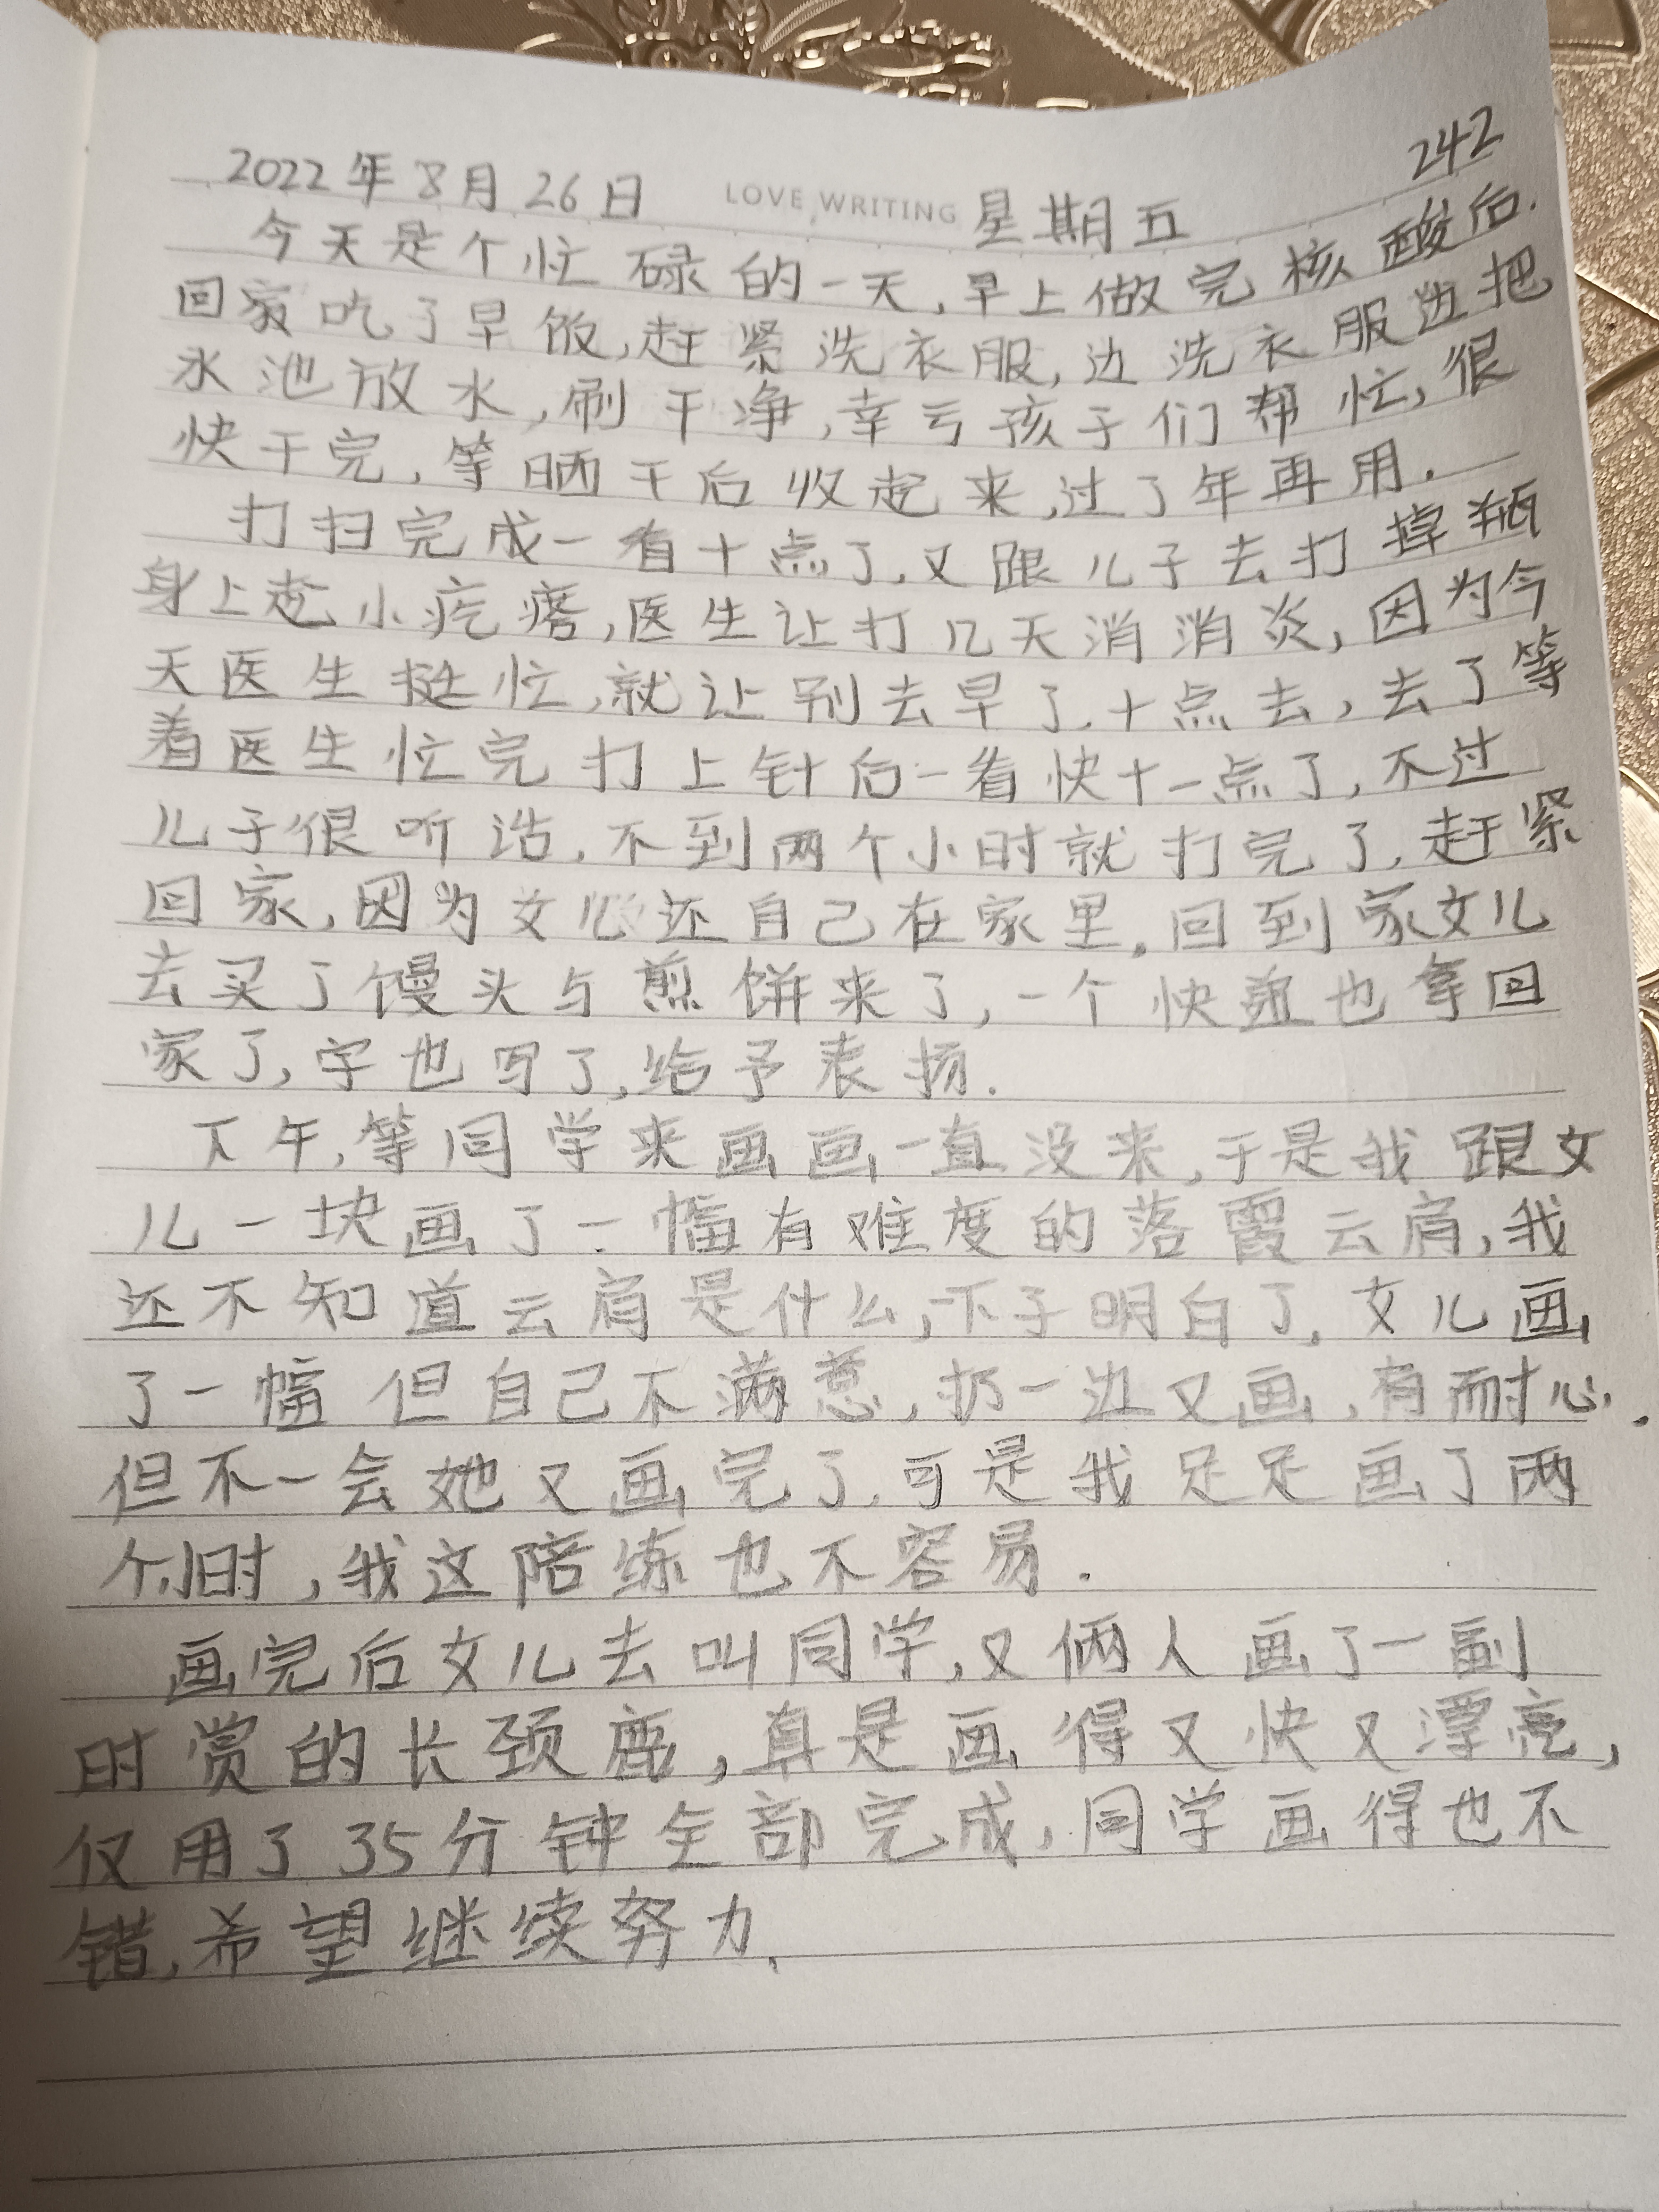 242
2022年8月26日 LOVE WRITING 星期五
今天是个忙碌的一天,早上做完核酸后.
回家吃了早饭,赶紧洗衣服,边洗衣服边把
水池放水,刷干净,幸亏孩子们帮忙,很
快干完,等晒干后收起来,过了年再用.
打扫完成一看十点了,又跟儿子去打掉瓶
身上起小疙瘩,医生让打几天消消炎,因为今
天医生挺忙,就让别去早了,十点去,去了等
着医生忙完打上针后一看快十一点了,不过
儿子很听话,不到两个小时就打完了,赶紧
回家,因为女儿还自己在家里。回到家女儿
去买了馒头与煎饼来了,一个快递也拿回
家了,字也写了,给予表扬.
下午,等同学来画画一直没来,于是我跟女
儿一块画了一幅有难度的落霞云肩,我
还不知道云肩是什么,一下子明白了,女儿画
了一幅但自己不满意,扔一边又画,有耐心.
但不一会她又画完了,可是我足足画了两
个小时,我这陪练也不容易.
画完后女儿去叫同学,又俩人画了一副
时赏的长颈鹿,真是画得又快又漂亮,
仅用了35分钟全部完成,同学画得也不
错,希望继续努力.